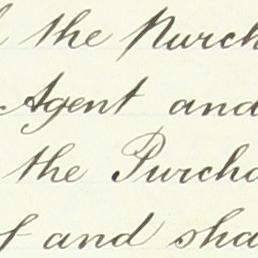 the Purch
Agent and
the Purcha
f and sha